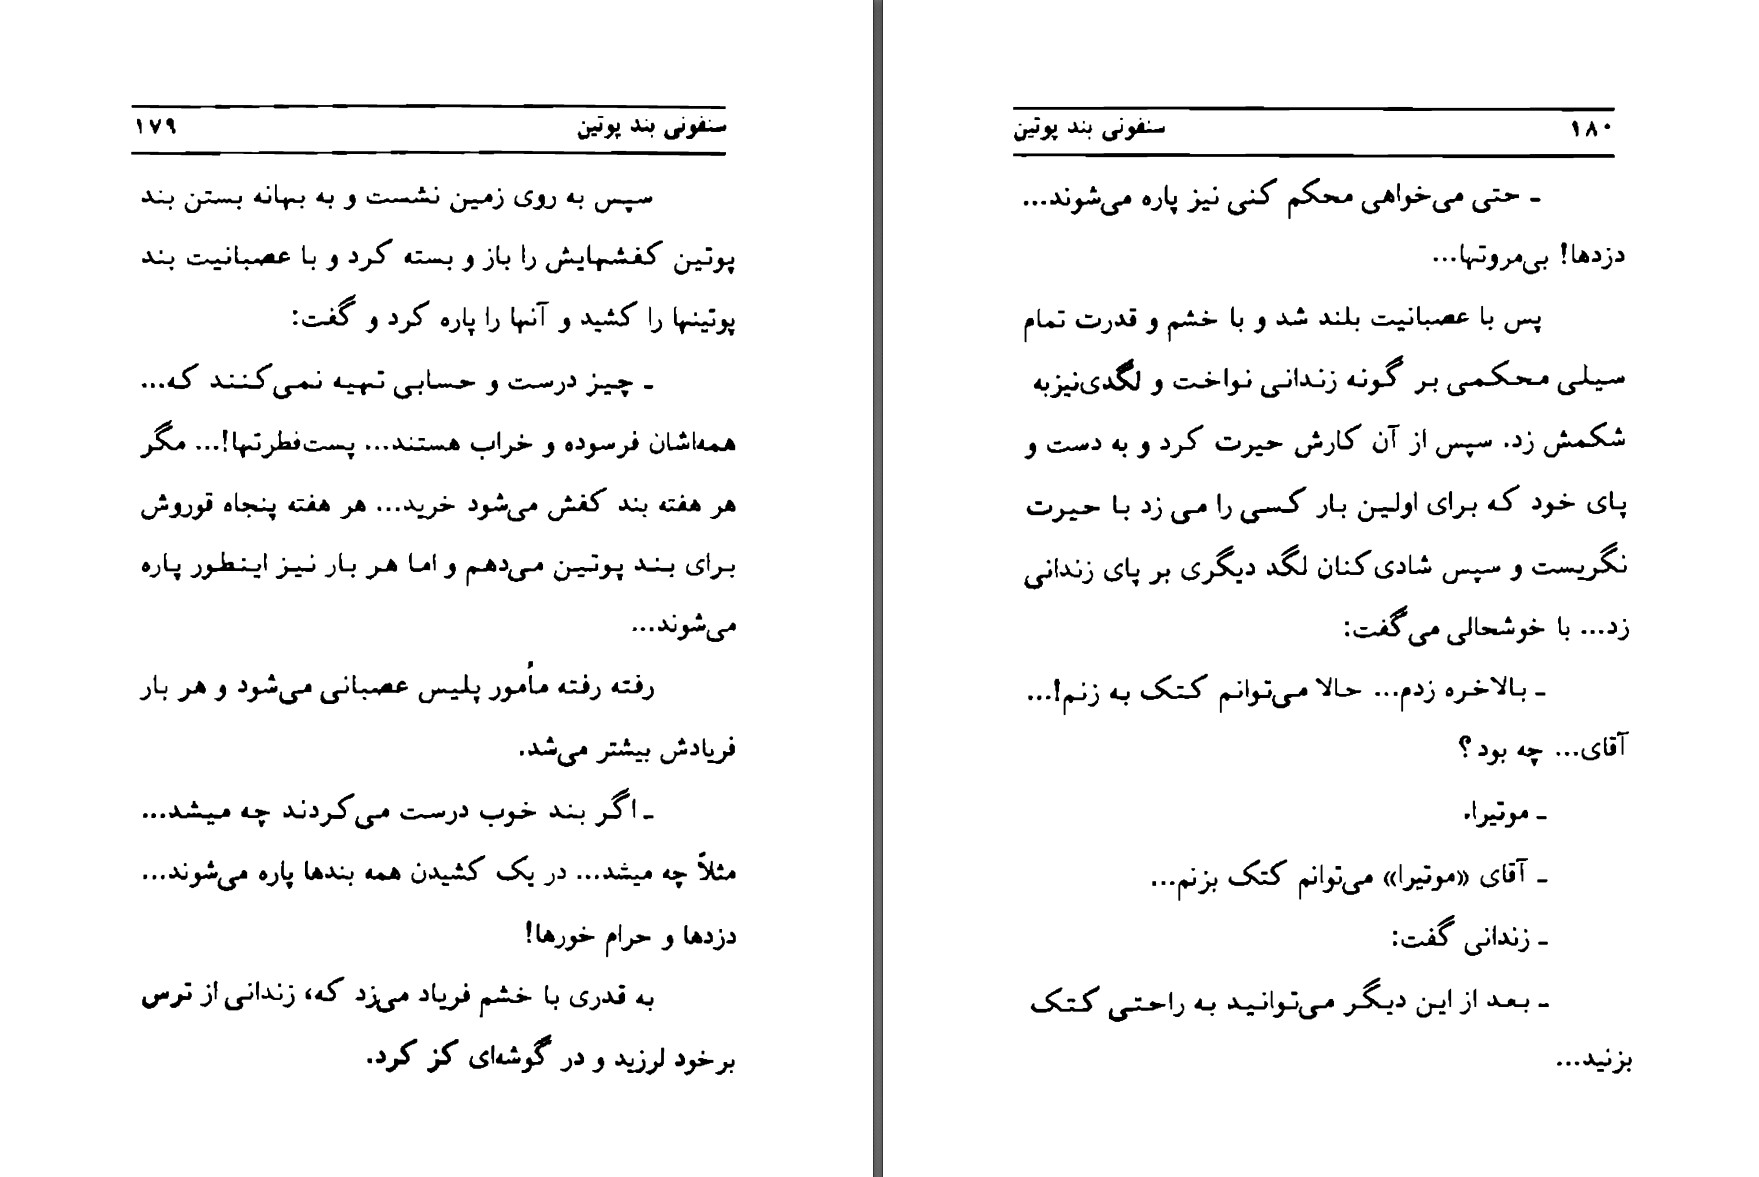 سنفونی بند پوتین ۱۷۹
سپس به روی زمین نشست و به بهانه بستن بند
پوتین کفشهایش را باز و بسته کرد و با عصبانیت بند
پوتینها را کشید و آنها را پاره کرد و گفت:
ـ چیز درست و حسابی تهیه نمی‌کنند که...
همه‌اشان فرسوده و خراب هستند... پست‌فطرتها!... مگر
هر هفته بند کفش می‌شود خرید... هر هفته پنجاه قوروش
برای بند پوتین می‌دهم و اما هر بار نیز اینطور پاره
می‌شوند...
رفته رفته مأمور پلیس عصبانی می‌شود و هر بار
فریادش بیشتر می‌شد.
ـ اگر بند خوب درست می‌کردند چه میشد...
مثلاً چه میشد... در یک کشیدن همه بندها پاره می‌شوند...
دزدها و حرام خورها!
به قدری با خشم فریاد می‌زد که، زندانی از ترس
برخود لرزید و در گوشه‌ای کز کرد.
۱۸۰ سنفونی بند پوتین
ـ حتی می‌خواهی محکم کنی نیز پاره می‌شوند...
دزدها! بی‌مروتها...
پس با عصبانیت بلند شد و با خشم و قدرت تمام
سیلی محکمی بر گونه زندانی نواخت و لگدی‌نیزبه
شکمش زد. سپس از آن کارش حیرت کرد و به دست و
پای خود که برای اولین بار کسی را می زد با حیرت
نگریست و سپس شادی‌کنان لگد دیگری بر پای زندانی
زد... با خوشحالی می‌گفت:
ـ بالاخره زدم... حالا می‌توانم کتک به زنم!...
آقای... چه بود؟
ـ موتیرا.
ـ آقای «موتیرا» می‌توانم کتک بزنم...
ـ زندانی گفت:
ـ بعد از این دیگر می‌توانید به راحتی کتک
بزنید...